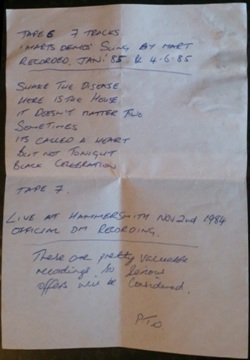 TAPE 6 7 TRACKS.
'MARTS DEMOS' SUNG BY MART
RECORDED JAN: 85 & 4-6-85
SHAKE THE DISEASE
HERE IS THE HOUSE
IT DOESN'T MATTER TWO
SOMETIMES
ITS CALLED A HEART
BUT NOT TONIGHT
BLACK CELEBRATION
TAPE 7.
LIVE AT HAMMERSMITH NOV 2nd 1984
OFFICIAL DM RECORDING.
These are pretty valuable
recordings so serious
offers will be considered.
PTO